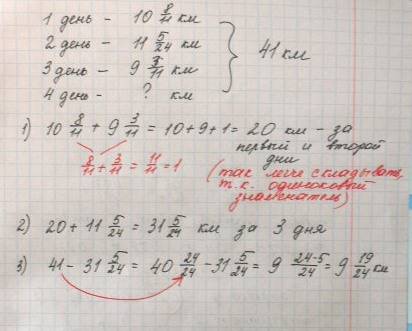 1 день - 10 8/11 км
2 день - 11 5/24 км
3 день - 9 3/11 км
4 день - ? км
} 41 км
1) 10 8/11 + 9 3/11 = 10 + 9 + 1 = 20 км - за
первый и второй
дни
8/11 + 3/11 = 11/11 = 1
(так легче складывать,
т.к. одинаковый
знаменатель)
2) 20 + 11 5/24 = 31 5/24 км за 3 дня
3) 41 - 31 5/24 = 40 24/24 - 31 5/24 = 9 24-5/24 = 9 19/24 км